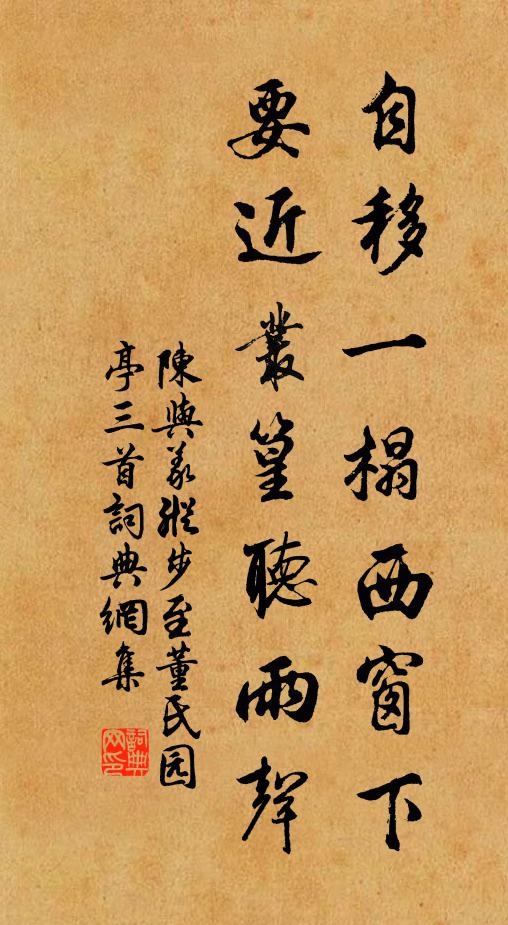 自移一榻西窗下
要近叢篁聽雨聲
陳與義縱步至董民园
亭三首詞典網集
詞典
网印